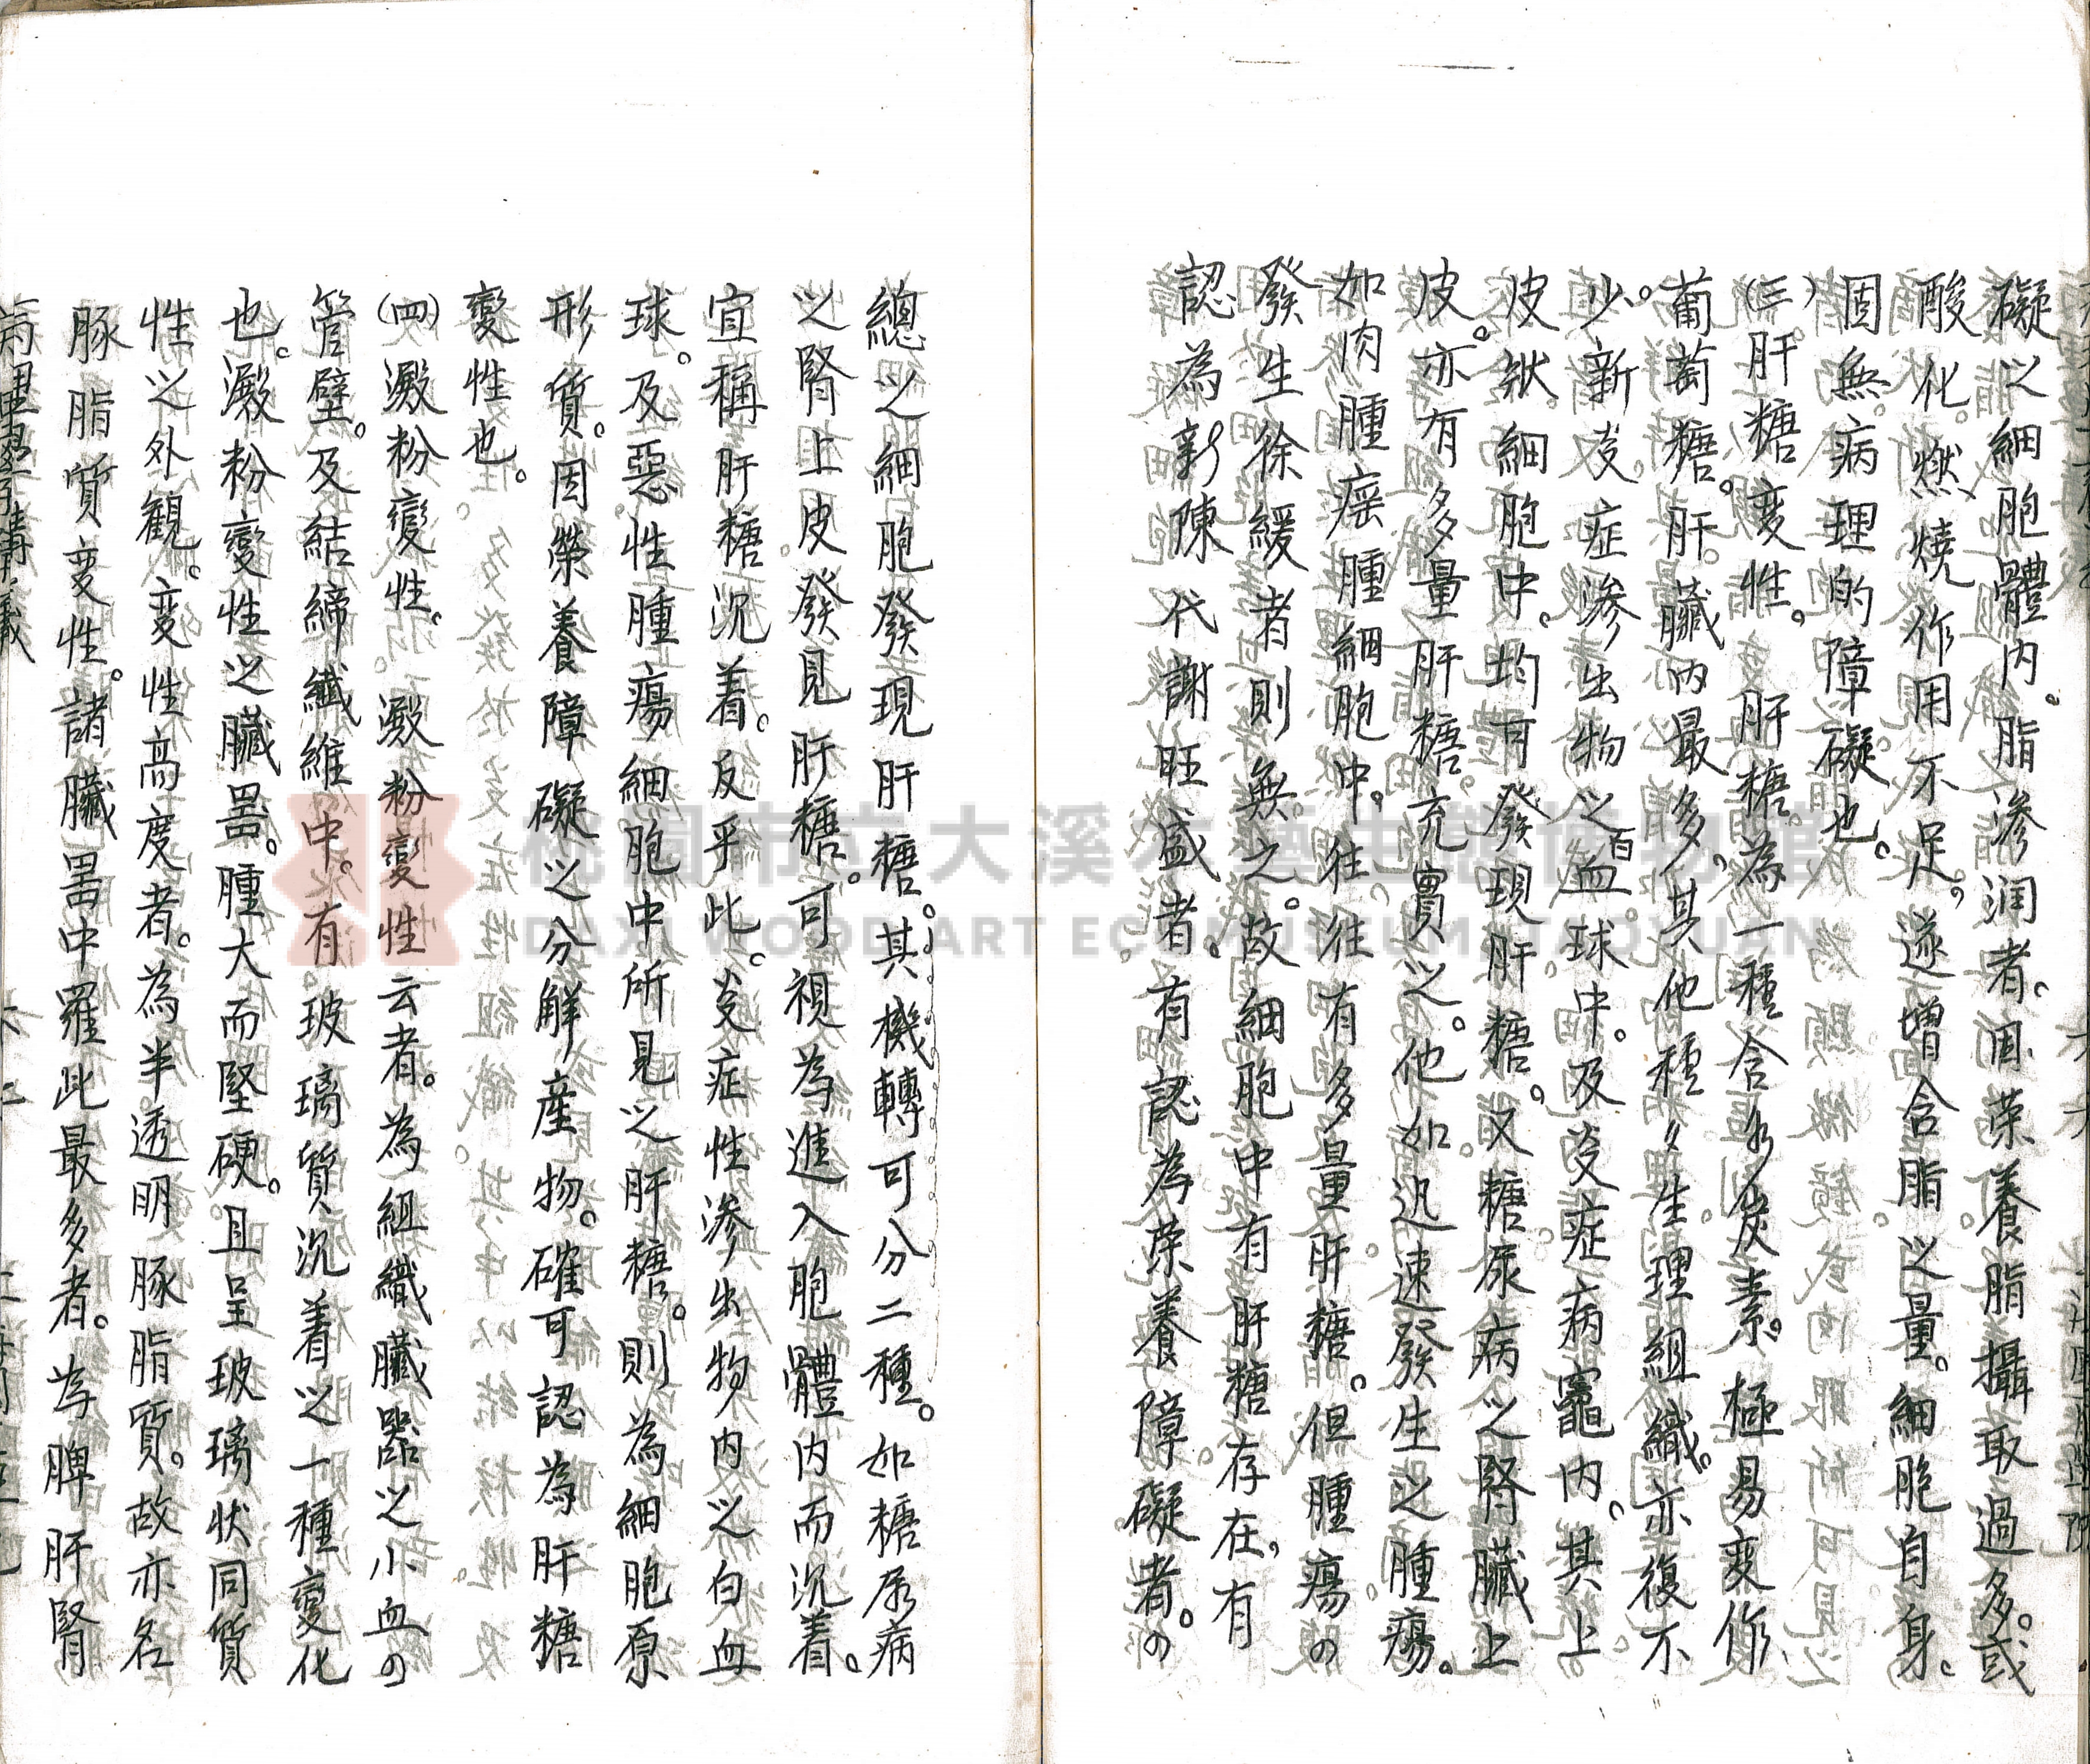 礙以細胞體內。脂滲润者。因荣養脂攝取過多。或
酸化。燃燒作用不足。遂增含脂之量。細胞自身。
固無病理的障礙也。
(三)肝糖变性。　肝糖為一種含水炭素。極易变作
葡萄糖。肝臟內最多。其他種々生理組織。亦復不
少。新炎症滲出物之白血球中。及炎症病竈內。其上
皮狀細胞中。均可發現肝糖。又糖尿病之腎臟上
皮。亦有多量肝糖充實之。他如迅速發生之腫瘍。
如肉腫瘤腫細胞中。往往有多量肝糖。但腫瘍の
發生徐緩者則無之。故細胞中有肝糖存在，有
認為新陳代謝旺盛者。有認為荣養障礙者。の
總之細胞發現肝糖。其機轉可分二種。如糖尿病
之腎上皮發見肝糖。可視為進入胞體內而沉着。
宜稱肝糖沉着。反乎此。炎症性滲出物內之白血
球。及惡性腫瘍細胞中所見之肝糖。則為細胞原
形質。因榮養障礙之分解産物。確可認為肝糖
變性也。
(四)澱粉變性。　澱粉變性云者。為組織臟器之小血の
管壁。及結締纖維中。有玻璃質沉着之一種變化
也。澱粉變性之臟器。腫大而堅硬。且呈玻璃状同質
性之外観。变性高度者。為半透明豚脂質。故亦名
豚脂質变性。諸臟器中罹此最多者。為脾肝腎
病理學講義
桃園市立大溪木藝生態博物館
DAXI WOOD ART ECOMUSEUM, TAOYUAN